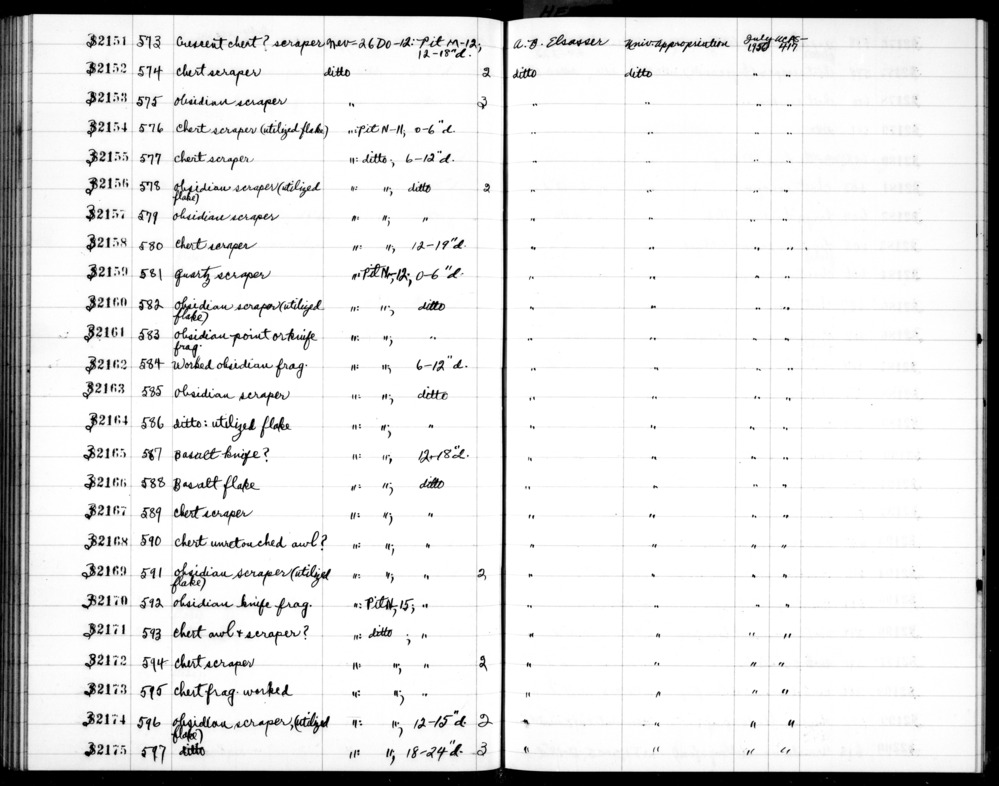 32151 573 Crescent chert? scraper Nev-26 Do-12: Pit M-12; 12-18"d. A.B. Elsasser Univ. appropriation July 1950 UCAS-
32152 574 chert scraper ditto 2 ditto ditto " "
32153 575 obsidian scraper " 3 " " " "
32154 576 chert scraper (utilized flake) ": Pit N-11; 0-6"d. " " " "
32155 577 chert scraper ": ditto; 6-12"d. " " " "
32156 578 obsidian scraper (utilized flake) ": "; ditto 2 " " " "
32157 579 obsidian scraper ": "; " " " " "
32158 580 chert scraper ": "; 12-19"d. " " " "
32159 581 quartz scraper ": Pit N-12; 0-6"d. " " " "
32160 582 obsidian scraper (utilized flake) ": "; ditto " " " "
32161 583 obsidian-point or knife frag. ": "; " " " " "
32162 584 Worked obsidian frag. ": "; 6-12"d. " " " "
32163 585 obsidian scraper ": "; ditto " " " "
32164 586 ditto: utilized flake ": "; " " " " "
32165 587 Basalt knife? ": "; 12-18"d. " " " "
32166 588 Basalt flake ": "; ditto " " " "
32167 589 chert scraper ": "; " " " " "
32168 590 chert unretouched awl? ": "; " " " " "
32169 591 obsidian scraper (utilized flake) ": "; " 2 " " " "
32170 592 obsidian knife frag. ": Pit N-15; " " " " "
32171 593 chert awl + scraper? ": ditto; " " " " "
32172 594 chert scraper ": "; " 2 " " " "
32173 595 chert frag. worked ": "; " " " " "
32174 596 obsidian scraper, (utilized flake) ": "; 12-15"d. 2 " " " "
32175 597 ditto ": "; 18-24"d. 3 " " " "